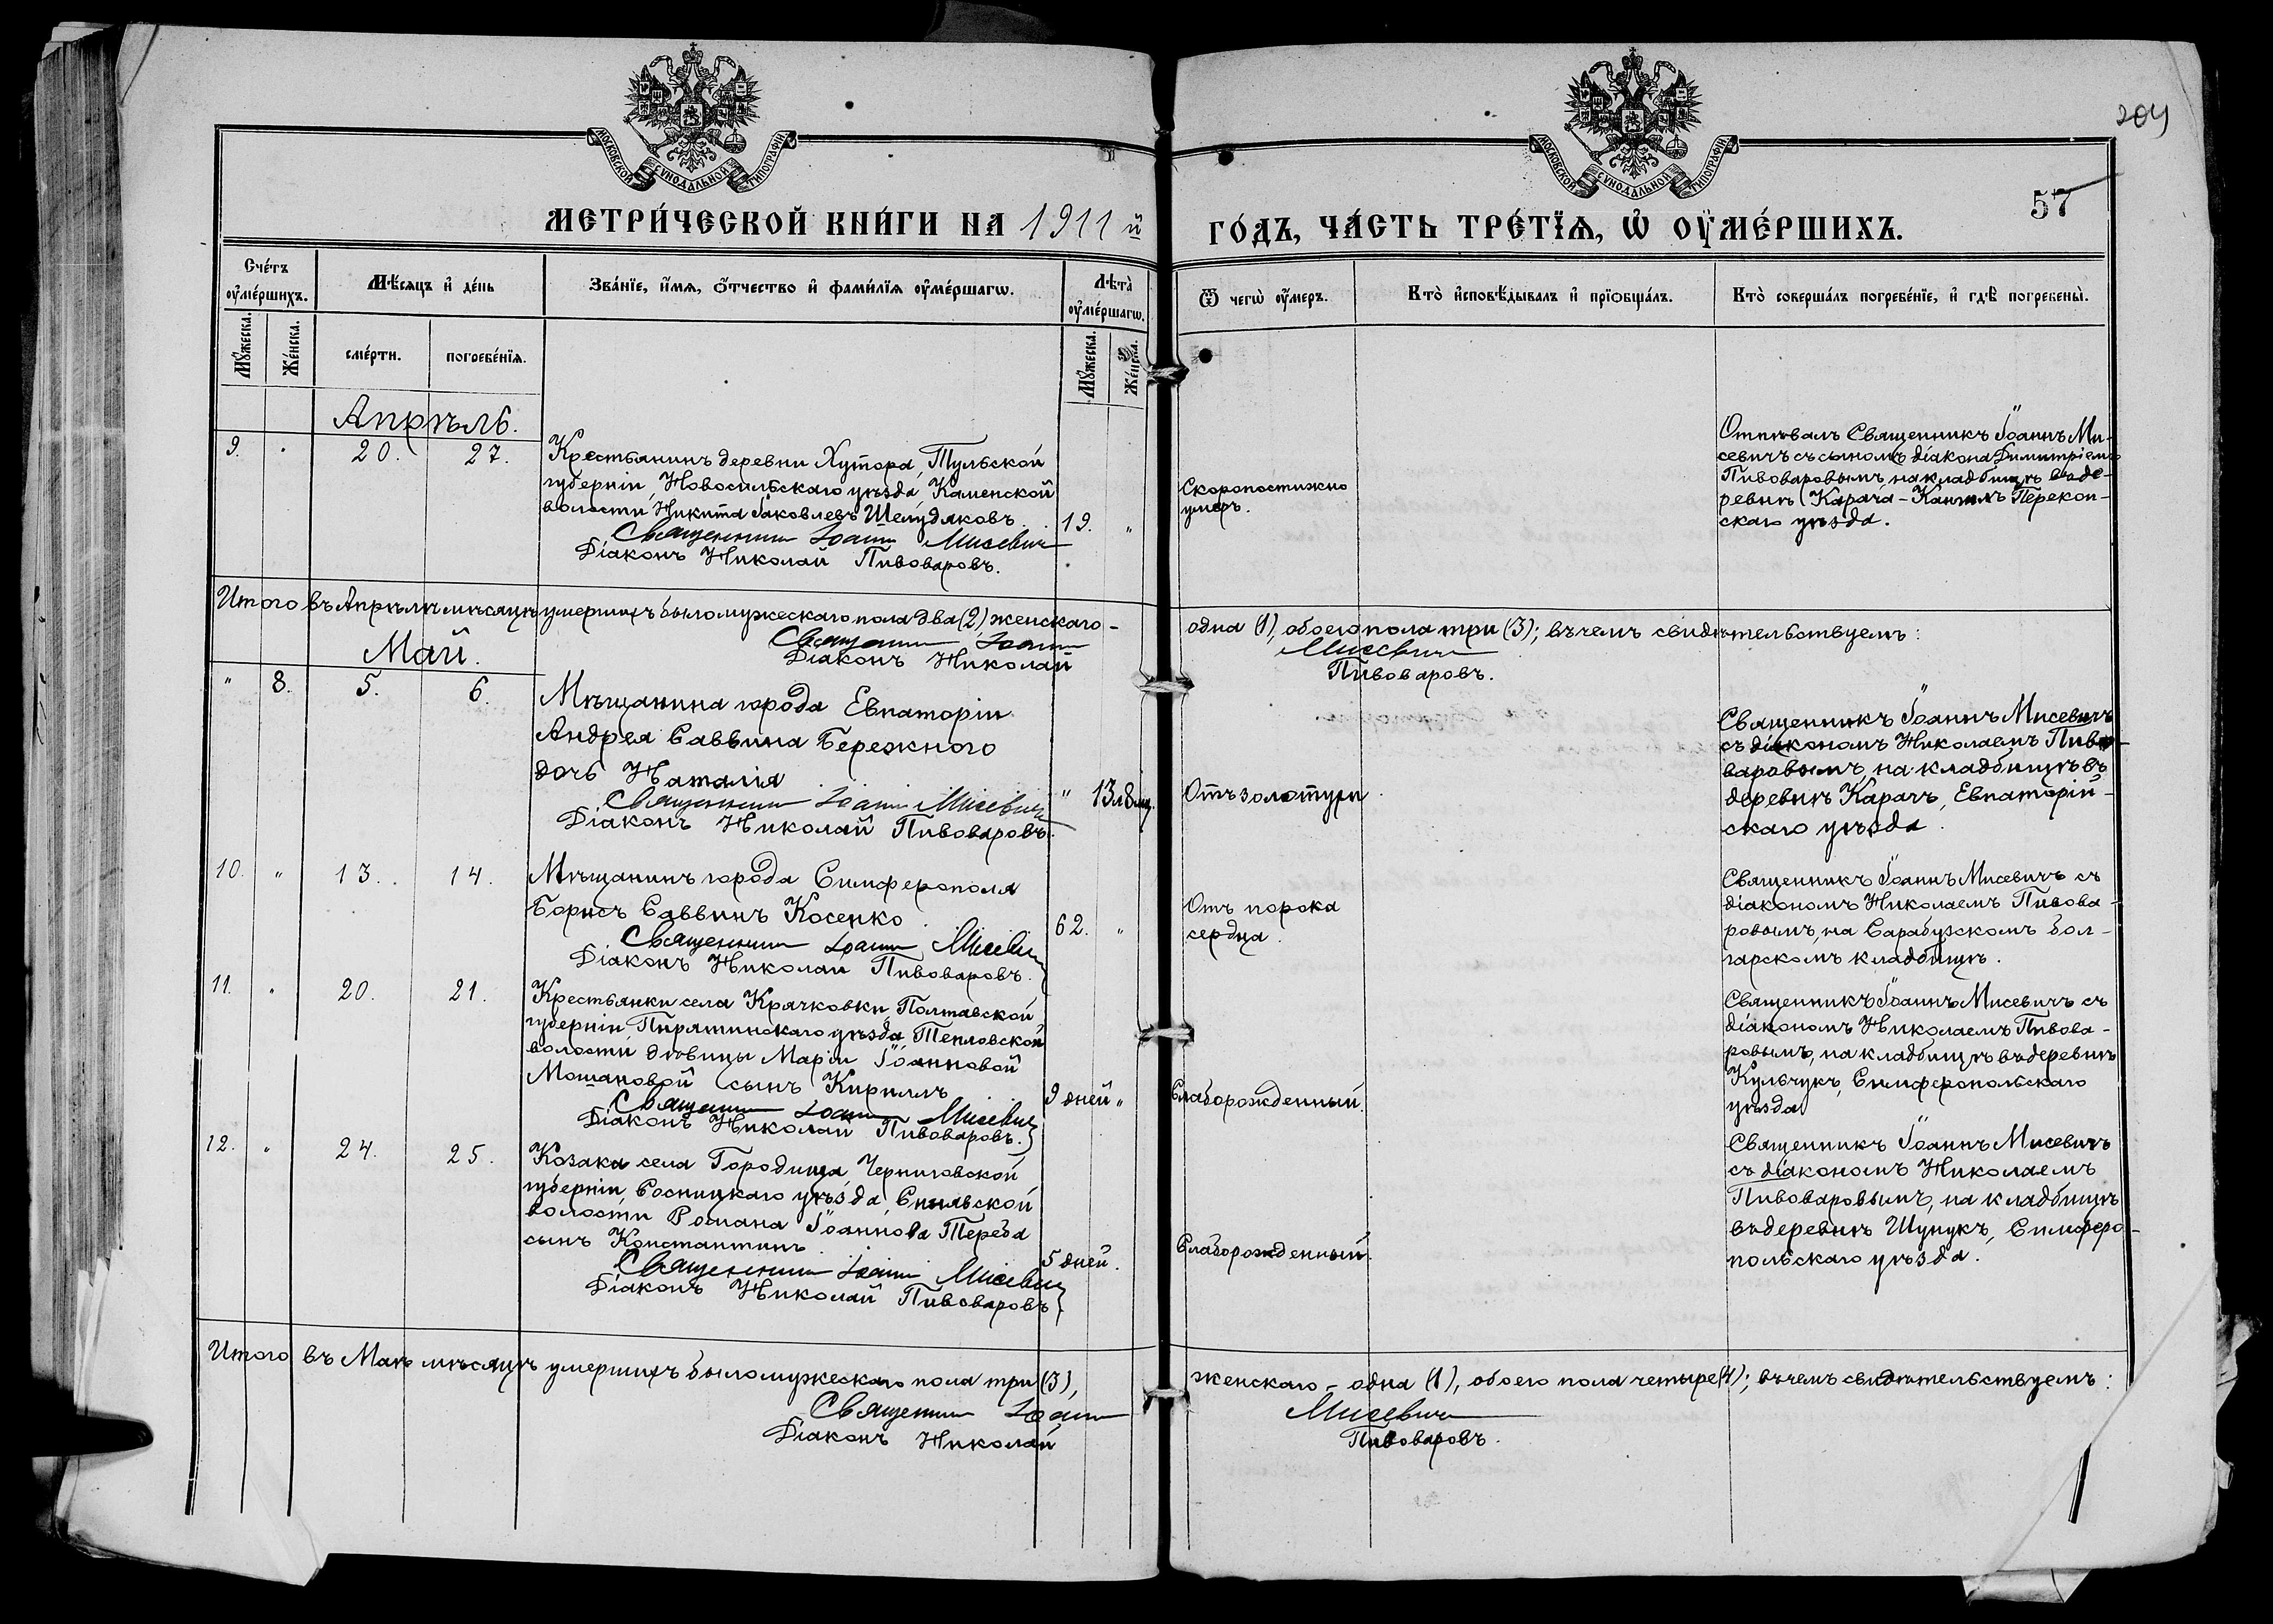 МОСКОВСКОЙ СУНОДАЛЬНОЙ ТИПОГРАФІИ
МОСКОВСКОЙ СУНОДАЛЬНОЙ ТИПОГРАФІИ
204
57
МЕТРИ́ЧЕСКОЙ КНИ́ГИ НА 1911 й
ГО́ДЪ, ЧА́СТЬ ТРЕ́ТЇѦ, Ѡ҆ ОУ҆МЕ́РШИХЪ.
Сче́тъ оу҆ме́ршихъ.
Мѣ́сѧцъ и҆ де́нь
Зва́нїе, и҆́мѧ, ѻ҆́тчество и҆ фами́лїѧ оу҆ме́ршагѡ.
Лѣта̀ оу҆ме́ршагѡ.
Ѿ чегѡ̀ оу҆́меръ.
Кто̀ и҆сповѣ́дывалъ и҆ прїѡбща́лъ.
Кто̀ соверша́лъ погребе́нїе, и҆ гдѣ̀ погребены̀.
Мꙋ́жеска.
Же́нска.
сме́рти.
погребе́нїѧ.
Мꙋ́жеска.
Же́нска.
Апрѣль.
9. " 20. 27.
Крестьянинъ деревни Хутора, Тульской
губерніи, Новосильскаго уѣзда, Каменской
волости Никита Іаковлевъ Шелудяковъ. 19. "
Священникъ Іоаннъ Мисевичъ
Діаконъ Николай Пивоваровъ.
Скоропостижно
умеръ.
Отпѣвалъ Священникъ Іоаннъ Ми-
севичъ съ сыномъ діакона Димитріемъ
Пивоваровымъ, на кладбищѣ въ де-
ревнѣ Карача-Кангилъ Перекоп-
скаго уѣзда.
Итого въ Апрѣлѣ мѣсяцѣ умершихъ было мужескаго пола два (2), женскаго -
одна (1), обоего пола три (3); въ чемъ свидѣтельствуемъ:
Священникъ Іоаннъ Мисевичъ
Діаконъ Николай Пивоваровъ.
Май.
" 8. 5. 6.
Мѣщанина города Евпаторіи
Андрея Саввина Бережного
дочь Наталія
Священникъ Іоаннъ Мисевичъ
Діаконъ Николай Пивоваровъ.
" 13л8мц.
Отъ золотухи.
Священникъ Іоаннъ Мисевичъ
съ діакономъ Николаемъ Пиво-
варовымъ, на кладбищѣ въ
деревнѣ Карачъ, Евпаторій-
скаго уѣзда.
10. " 13. 14.
Мѣщанинъ города Симферополя
Борисъ Саввинъ Косенко. 62. "
Священникъ Іоаннъ Мисевичъ
Діаконъ Николай Пивоваровъ.
Отъ порока
сердца.
Священникъ Іоаннъ Мисевичъ съ
діакономъ Николаемъ Пивова-
ровымъ, на Сарабузскомъ бол-
гарскомъ кладбищѣ.
11. " 20. 21.
Крестьянки села Крячковки, Полтавской
губерніи, Пирятинскаго уѣзда, Тепловской
волости дѣвицы Маріи Іоанновой
Мошановой сынъ Кириллъ 9 дней "
Священникъ Іоаннъ Мисевичъ
Діаконъ Николай Пивоваровъ.
Слаборожденный.
Священникъ Іоаннъ Мисевичъ съ
діакономъ Николаемъ Пивова-
ровымъ, на кладбищѣ въ деревнѣ
Кульчукъ, Симферопольскаго
уѣзда
12. " 24. 25.
Козака села Городища, Черниговской
губерніи, Сосницкаго уѣзда,
волости Романа Іоаннова Переба
сынъ Константинъ. 5 дней.
Священникъ Іоаннъ Мисевичъ
Діаконъ Николай Пивоваровъ
Слаборожденный.
Священникъ Іоаннъ Мисевичъ
съ діакономъ Николаемъ
Пивоваровымъ, на кладбищѣ
въ деревнѣ Шунукъ, Симферо-
польскаго уѣзда.
Итого въ Маѣ мѣсяцѣ умершихъ было мужескаго пола три (3),
женскаго - одна (1), обоего пола четыре (4); въ чемъ свидѣтельствуемъ:
Священникъ Іоаннъ Мисевичъ
Діаконъ Николай Пивоваровъ.